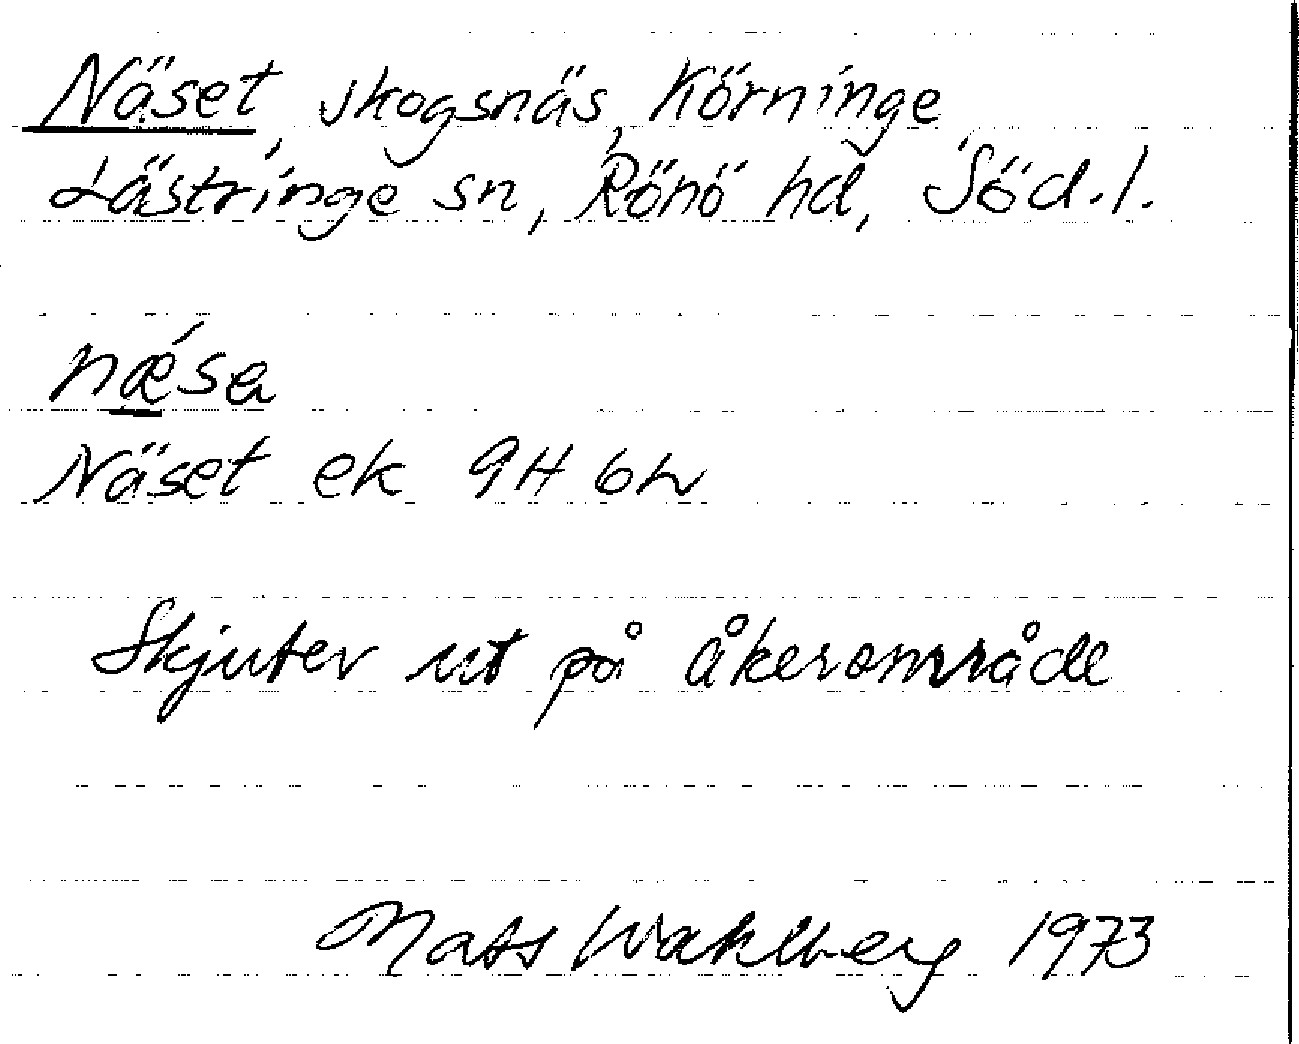 Näset, skogsnäs, Körninge,
Lästringe sn, Rönö hd, Söd.l.
nǽ̱sa
Näset ek 9H 6h
Skjuter ut på åkerområde
Mats Wahlberg 1973